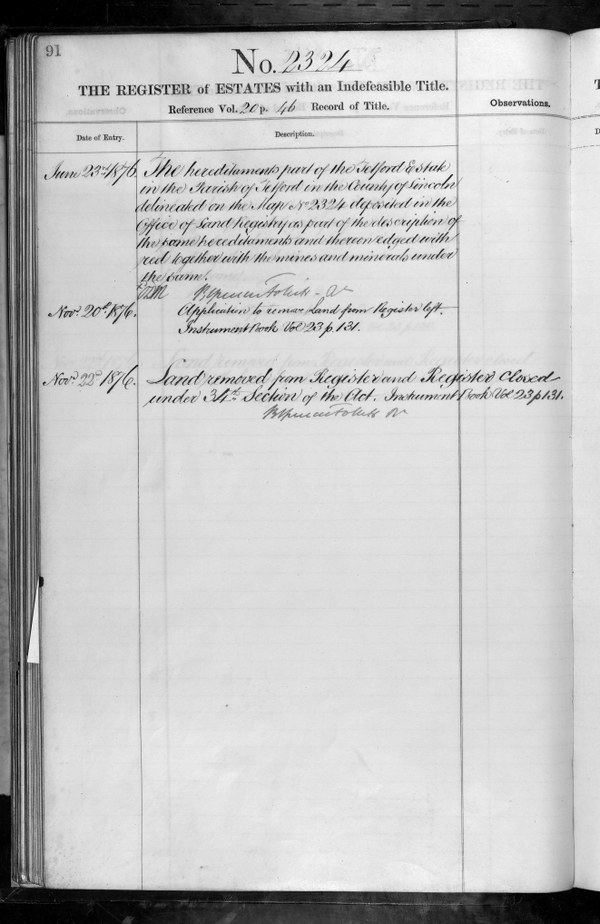 91
No. 2324
THE REGISTER of ESTATES with an Indefeasible Title.
Reference Vol. 20 p. 46 Record of Title.
Observations.
Date of Entry.
Description.
June 23rd 1876. The hereditaments part of the Tetford Estate
in the Parish of Tetford in the County of Lincoln
delineated on the Map No 2324 deposited in the
Office of Land Registry as part of the description of
the same hereditaments and thereon edged with
red together with the mines and minerals under
the same.
Novr. 20th 1876. Application to remove Land from Register left.
Instrument Book Vol 23 p. 131.
Novr. 22d 1876. Land removed from Register and Register Closed
under 34th Section of the Act. Instrument Book Vol 23 p 131.